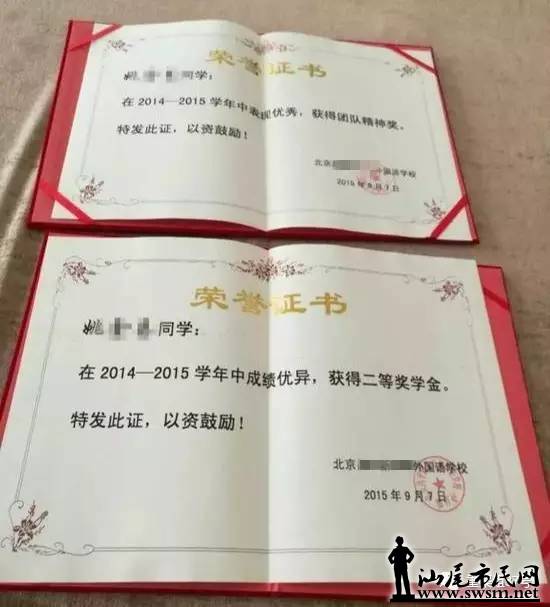 荣誉证书
姚 同学：
在2014—2015学年中表现优秀，获得团队精神奖。
特发此证，以资鼓励！
北京 外国语学校
2015年9月7日
荣誉证书
姚 同学：
在2014—2015学年中成绩优异，获得二等奖学金。
特发此证，以资鼓励！
北京 外国语学校
2015年9月7日
汕尾市民网
www.swsm.net